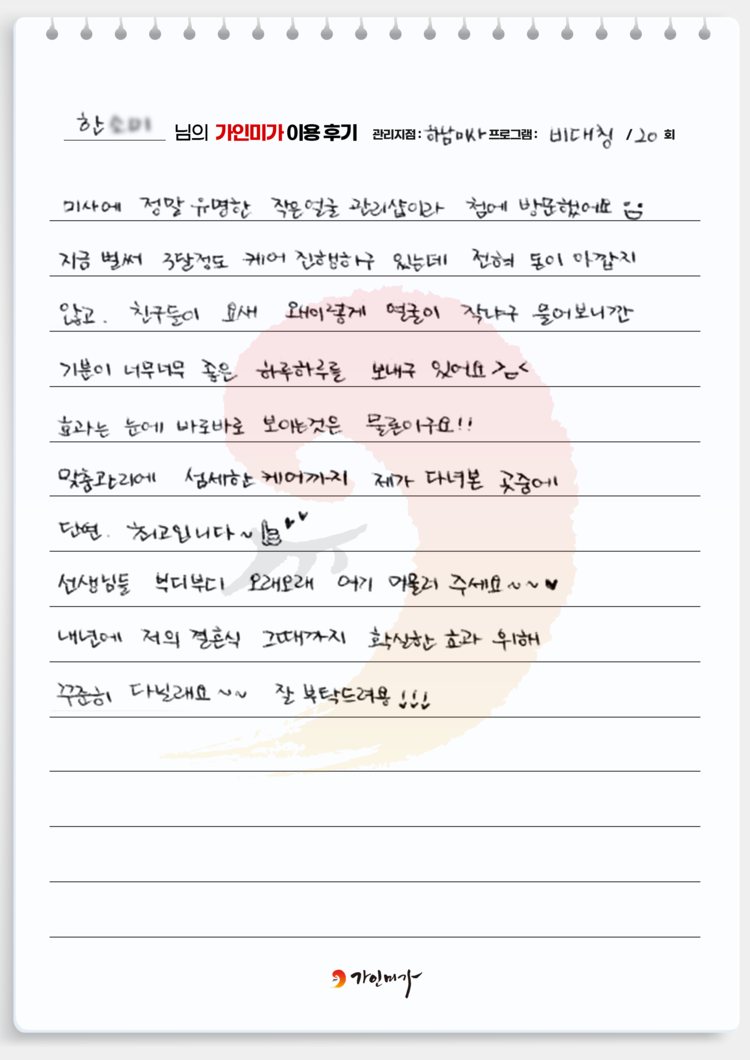 한 님의 가인미가 이용 후기 관리지점 : 하남미사 프로그램 : 비대칭 / 20 회
미사에 정말 유명한 작은얼굴 관리샵이라 첨에 방문했어요
지금 벌써 3달정도 케어 진행하구 있는데 전혀 돈이 아깝지
않고. 친구들이 요새 왜이렇게 얼굴이 작냐구 물어보니깐
기분이 너무너무 좋은 하루하루를 보내구 있어요 >_<
효과는 눈에 바로바로 보이는것은 물론이구요!!
맞춤관리에 섬세한 케어까지 제가 다녀본 곳중에
단연. 최고입니다~
선생님들 부디부디 오래오래 여기 머물러 주세요~~♥
내년에 저의 결혼식 그때까지 확실한 효과 위해
꾸준히 다닐래요~~ 잘 부탁드려용!!!
가인미가